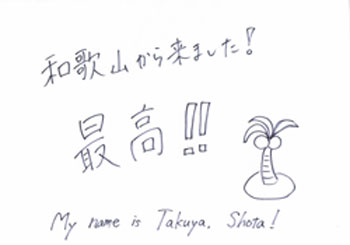 和歌山から来ました!
最高!!
My name is Takuya. Shota!